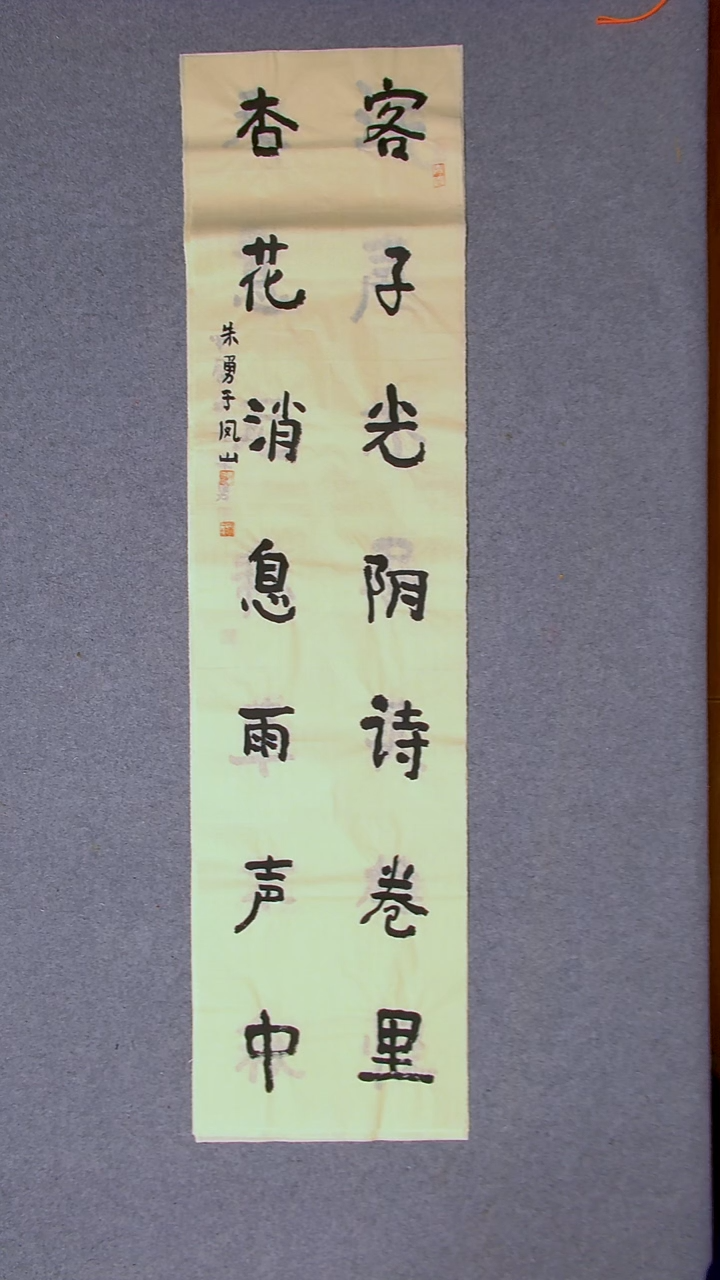 客子光阴诗卷里
杏花消息雨声中
朱勇于凤山